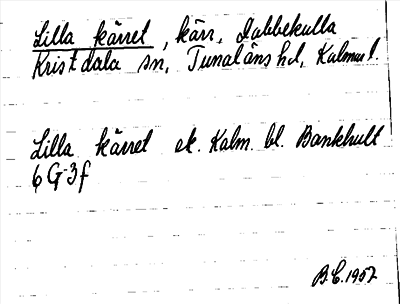 Lilla kärret, kärr, Dabbekulla
Kristdala sn, Tunaläns hd, Kalmar l.
Lilla kärret ek. Kalm. bl. Bankhult
6 G 3 f
B.E. 1957